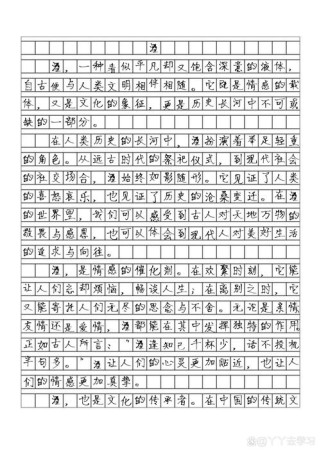 酒
酒，一种看似平凡却又饱含深意的液体，
自古便与人类文明相伴相随。它既是情感的载
体，又是文化的象征，更是历史长河中不可或
缺的一部分。
在人类历史的长河中，酒扮演着举足轻重
的角色。从远古时代的祭祀仪式，到现代社会
的社交场合，酒始终如影随形。它见证了人类
的喜怒哀乐，也见证了历史的沧桑变迁。在酒
的世界里，我们可以感受到古人对天地万物的
敬畏与感恩，也可以体会到现代人对美好生活
的追求与向往。
酒，是情感的催化剂。在欢聚时刻，它能
让人们忘却烦恼，畅谈人生；在离别之时，它
又能寄托人们无尽的思念与不舍。无论是亲情
友情还是爱情，酒都能在其中发挥独特的作用
正如古人所言：“酒逢知己千杯少，话不投机
半句多。”酒让人们的心灵更加贴近，也让人
们的情感更加真挚。
酒，也是文化的传承者。在中国的传统文